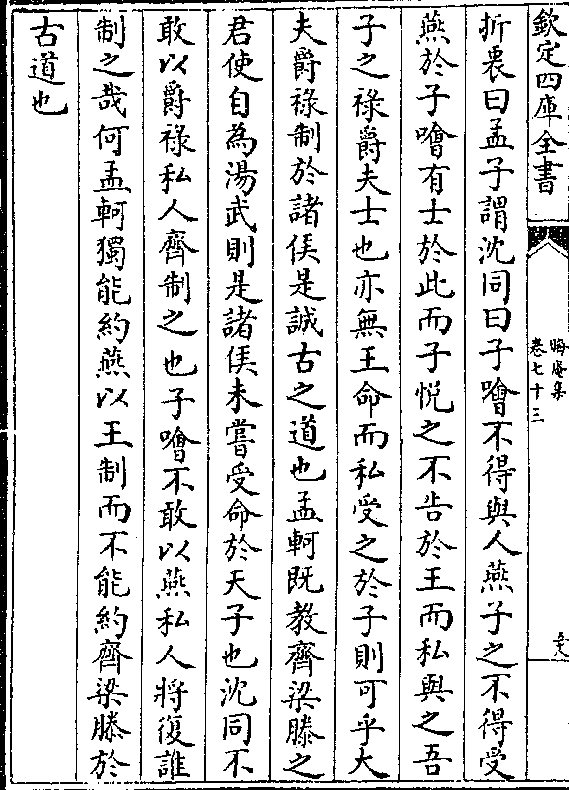 欽定四庫全書
晦庵集
卷七十三
折衷曰孟子謂沈同曰子噲不得與人燕子之不得受
燕於子噲有士於此而子悅之不告於王而私與之吾
子之祿爵夫士也亦無王命而私受之於子則可乎大
夫爵祿制於諸侯是誠古之道也孟軻既教齊梁滕之
君使自為湯武則是諸侯未嘗受命於天子也沈同不
敢以爵祿私人齊制之也子噲不敢以燕私人將復誰
制之哉何孟軻獨能約燕以王制而不能約齊梁滕於
古道也